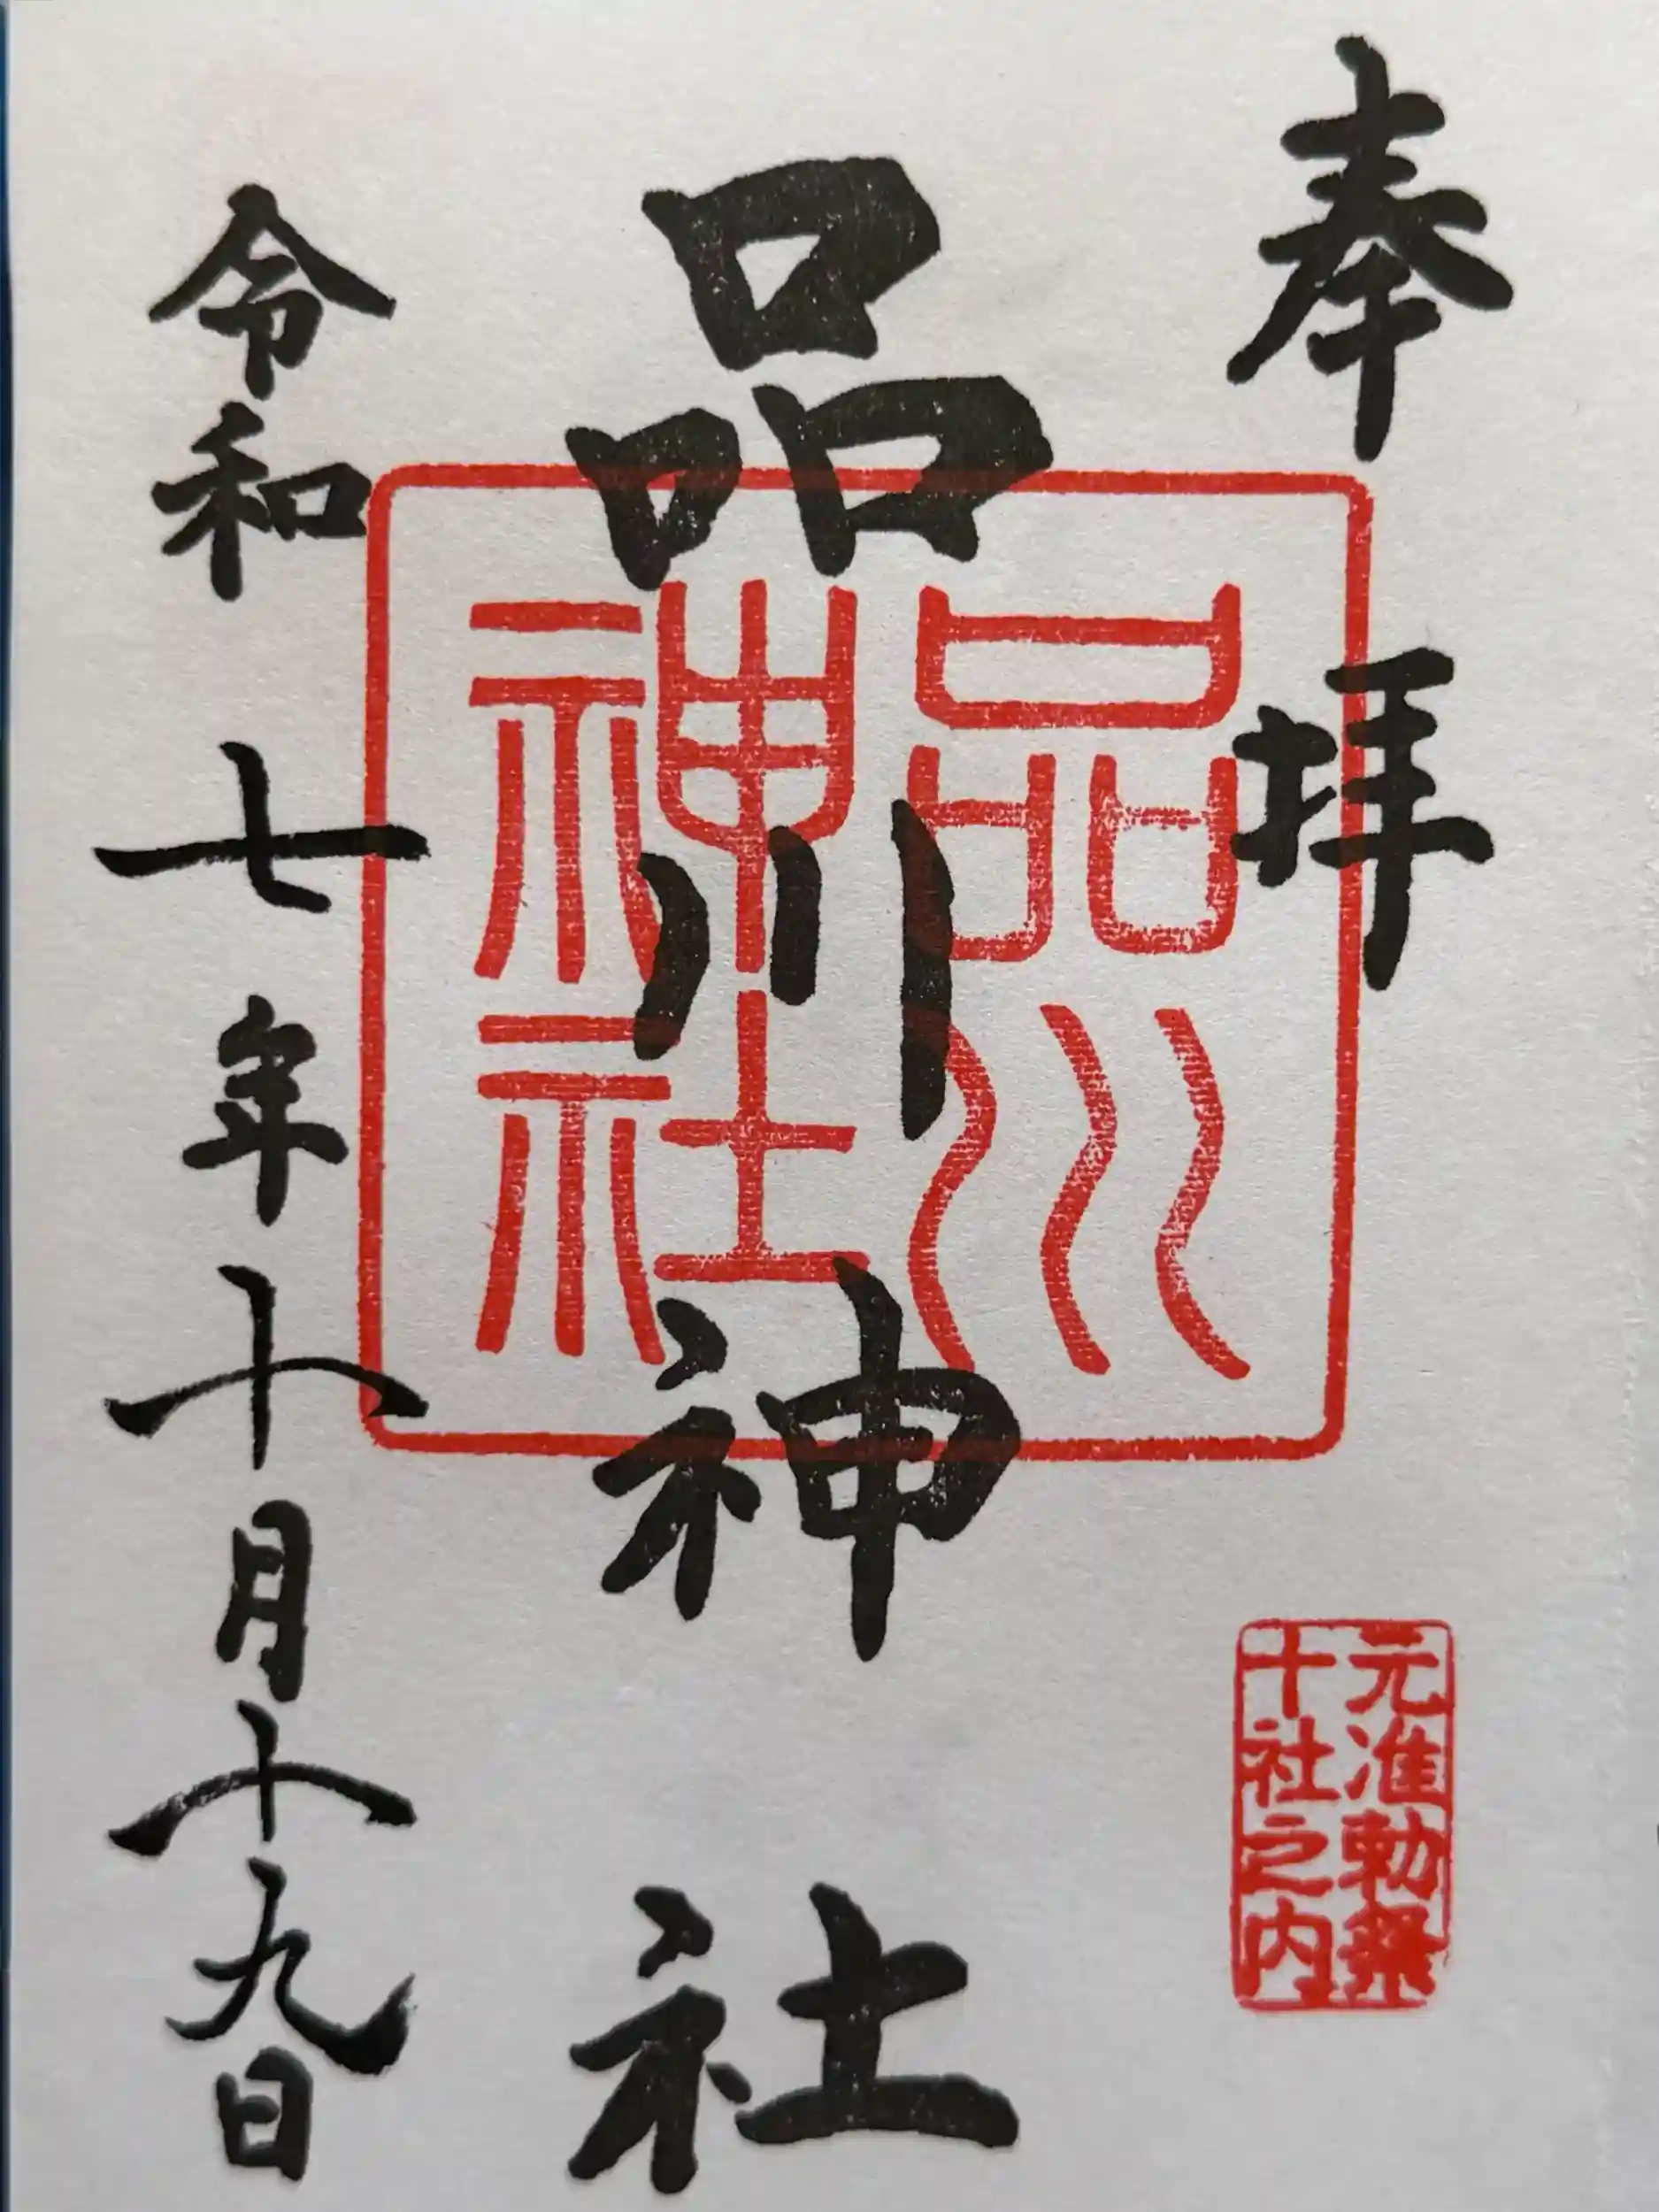 奉拝
品川神社
品川
神社
元准勅祭
十社之内
令和七年十月十九日